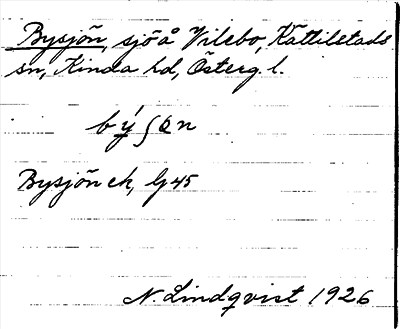 Bysjön, sjö å Vilsbo, Kättilstads
sn, Kinda hd, Österg. l.
Bysjön ek, G 45
N. Lindqvist 1926